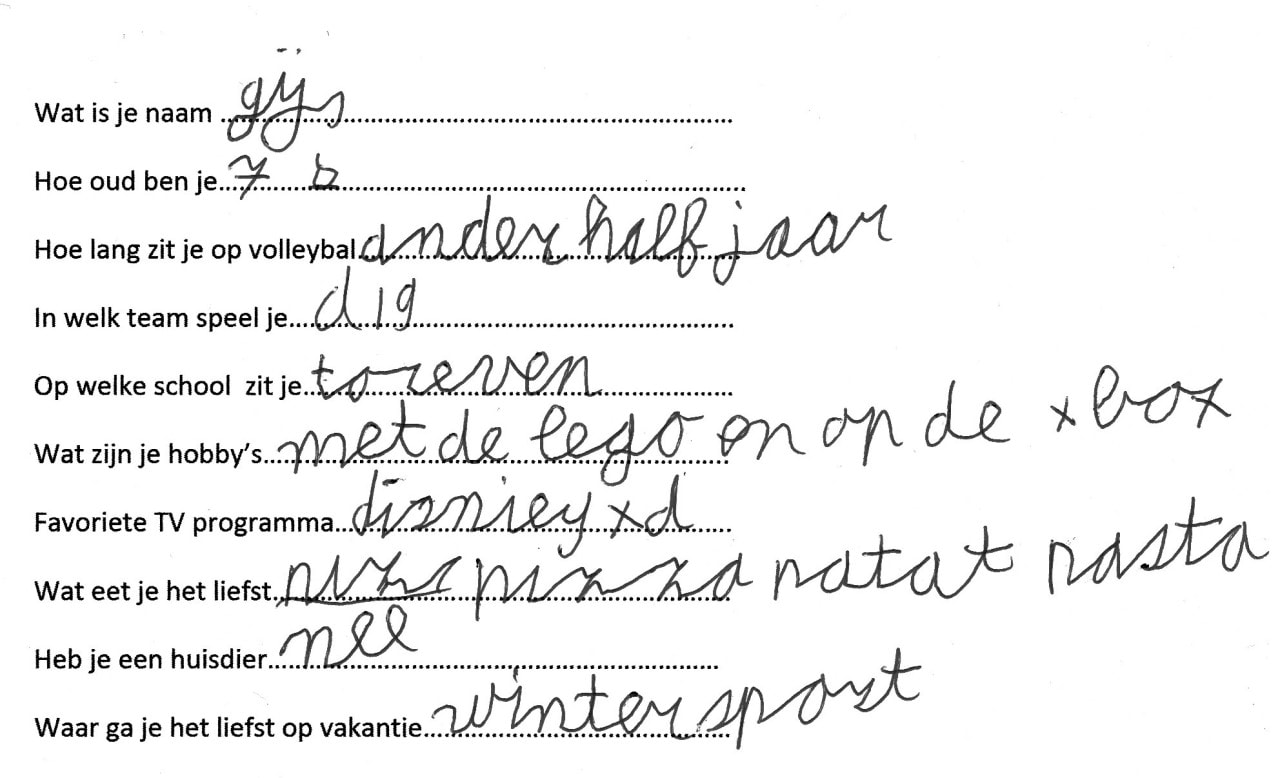 Wat is je naam gijs
Hoe oud ben je 7
Hoe lang zit je op volleybal anderhalf jaar
In welk team speel je d1g
Op welke school zit je toreven
Wat zijn je hobby's met de lego en op de xbox
Favoriete TV programma disniey xd
Wat eet je het liefst pizza patat pasta
Heb je een huisdier nee
Waar ga je het liefst op vakantie wintersport